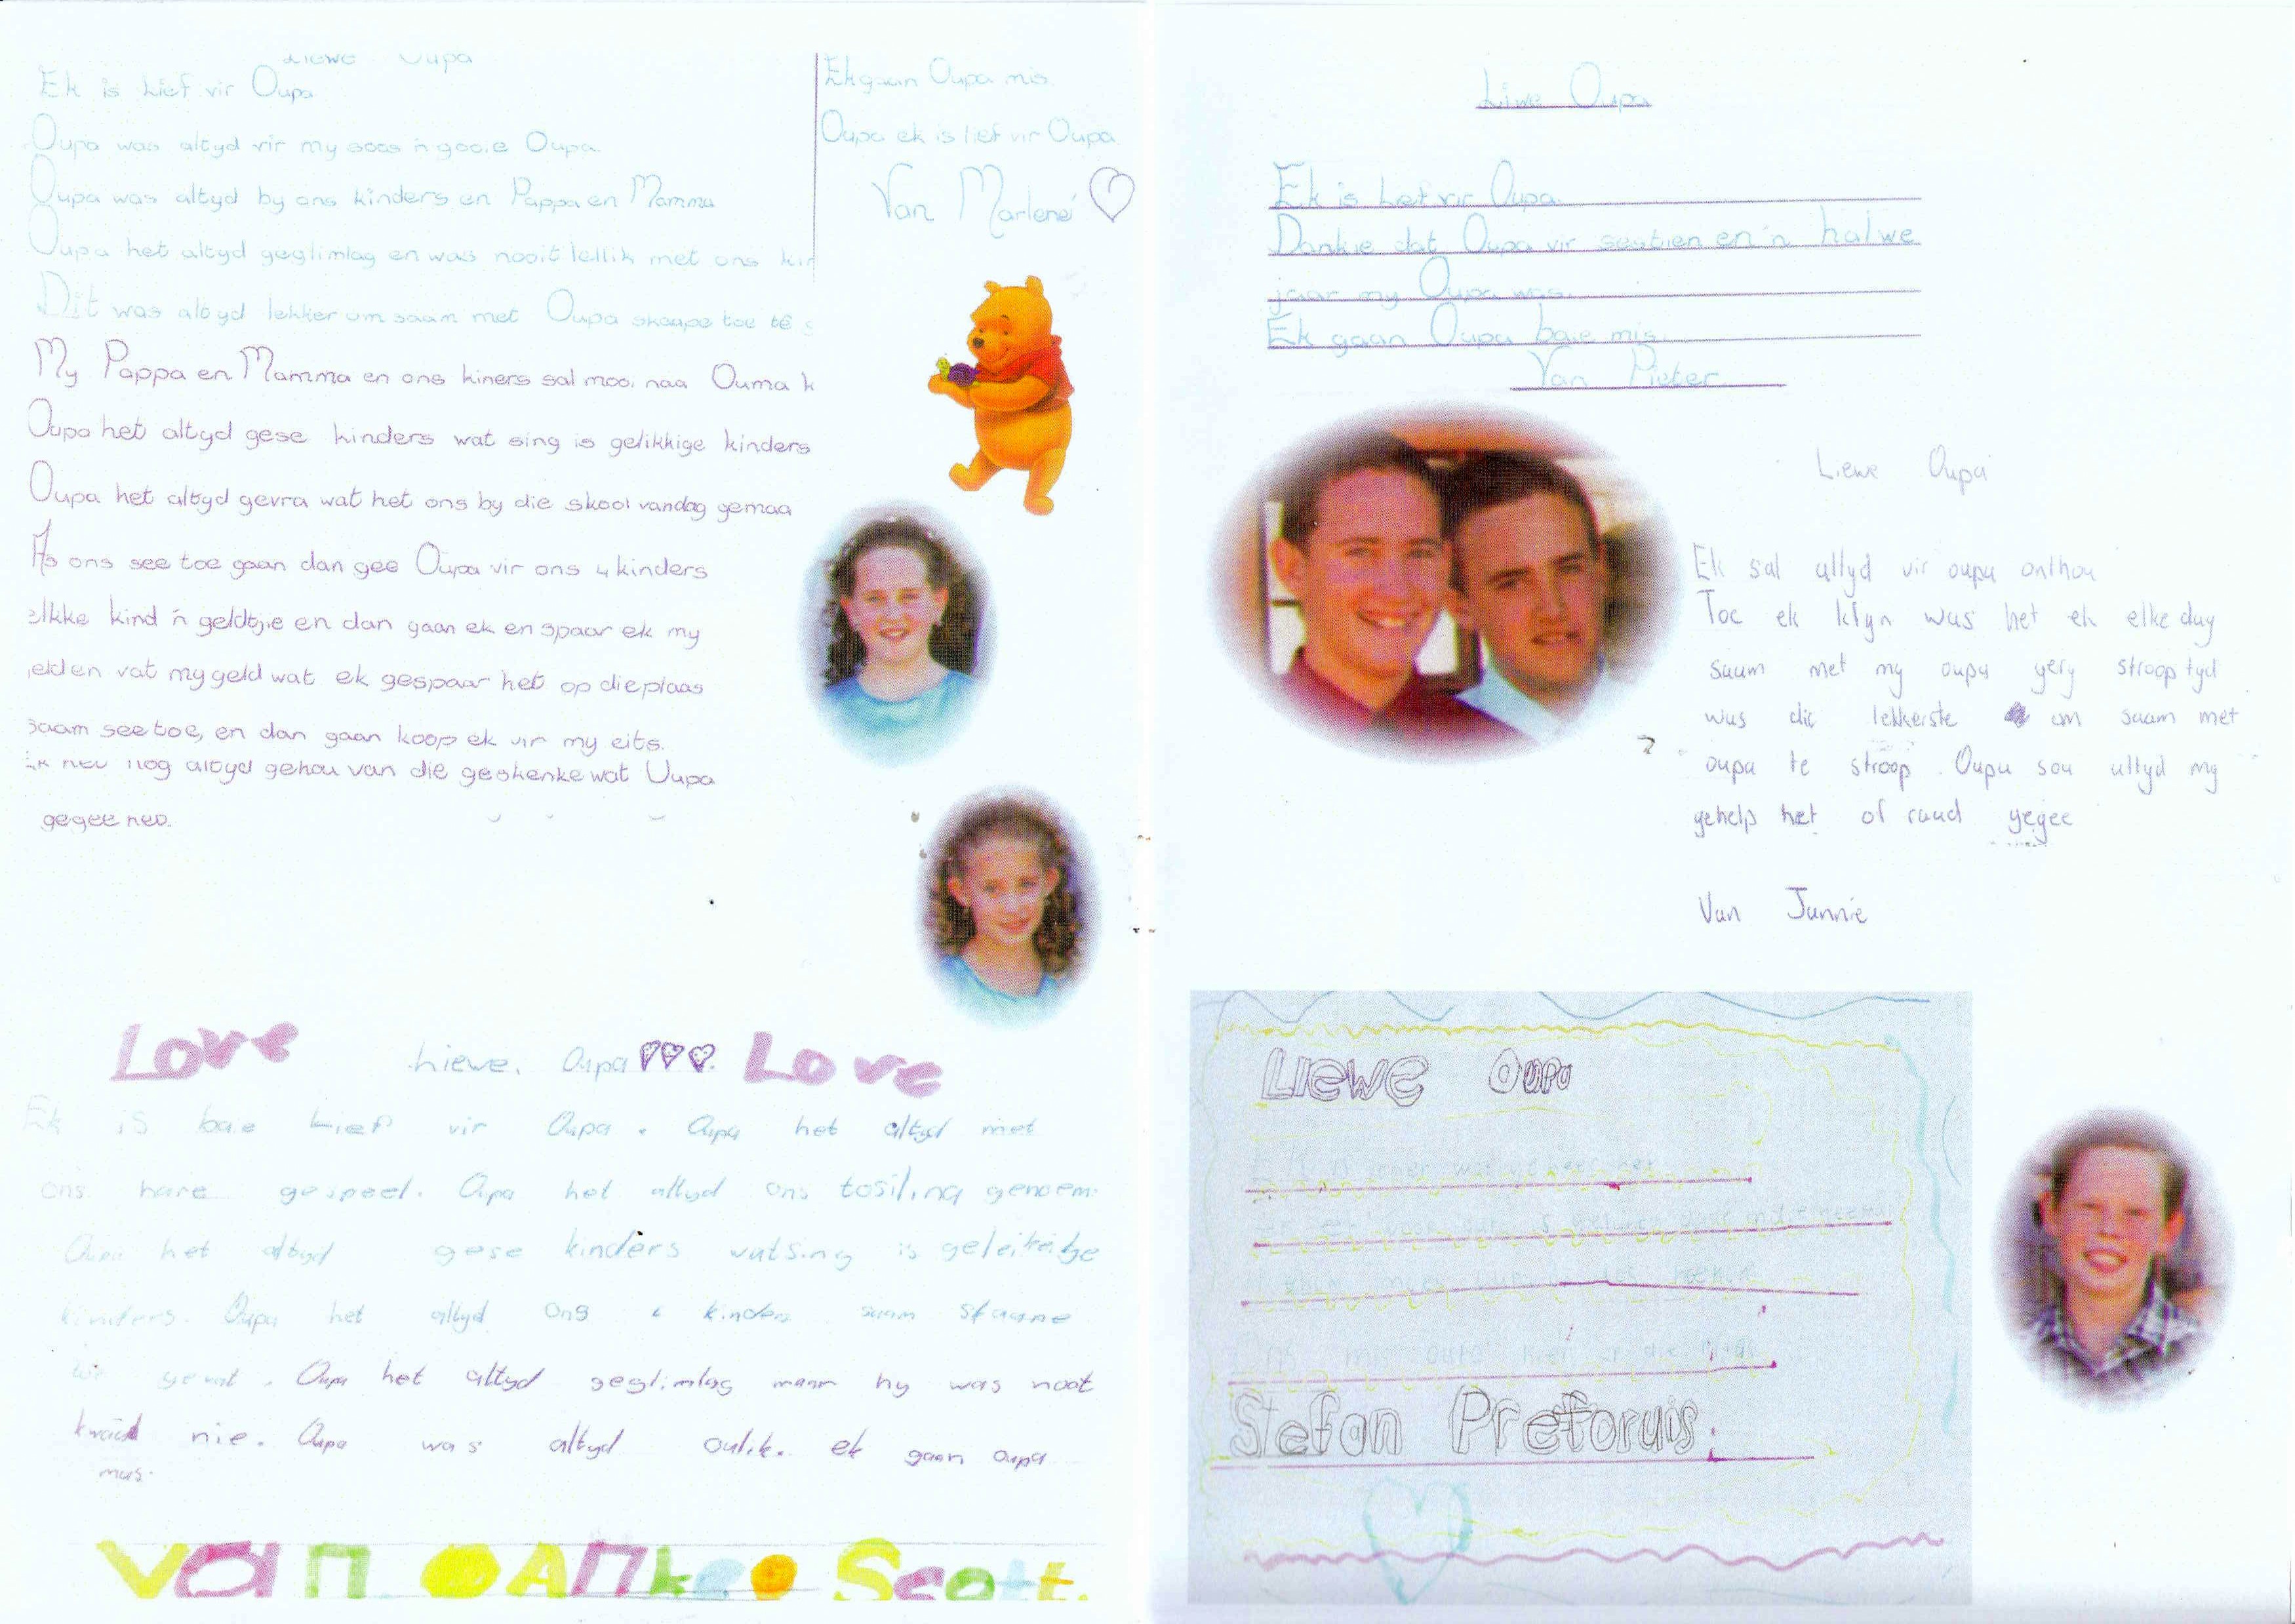 Liewe Oupa
Ek is Lief vir Oupa
Oupa was altyd vir my soos 'n gooie Oupa.
Oupa was altyd by ons kinders en Pappa en Mamma
Oupa het altyd geglimlag en was nooit lellik met ons kin
Dit was altyd lekker om saam met Oupa skaape toe te
My Pappa en Mamma en ons kiners sal mooi naa Ouma k
Oupa het altyd gese kinders wat sing is gelikkige kinders
Oupa het altyd gevra wat het ons by die skool vandag gemaa
As ons see toe gaan dan gee Oupa vir ons 4 kinders
elkke kind 'n geldtjie en dan gaan ek en spaar ek my
geld en vat my geld wat ek gespaar het op die plaas
saam see toe, en dan gaan koop ek vir my eits.
Ek het nog altyd gehou van die geskenke wat Oupa
gegee het.
Ek gaan Oupa mis.
Oupa ek is lief vir Oupa
Van Marlene
Love Liewe Oupa Love
Ek is baie Lief vir Oupa. Oupa het altyd met
ons hare gespeel. Oupa het altyd ons tosiling genoem.
Oupa het altyd gese kinders watsing is
kinders. Oupa het altyd ons 4 kinders saam
toe gevat. Oupa het altyd geglimlag maar hy was noot
kwaad nie. Oupa was altyd oulik. ek gaan oupa
mus.
Van Scott.
Liwe Oupa
Ek is Lief vir Oupa.
Dankie dat Oupa vir sestien en 'n halwe
jaar my Oupa was.
Ek gaan Oupa baie mis.
Van Pieter
Liewe Oupa
Ek sal altyd vir oupa onthou
Toe ek klyn was het ek elke dag
saam met my oupa gery strooptyd
was die lekkerste om saam met
oupa te stroop. Oupa sou altyd my
gehelp het of raad gegee
Van Jannie
Liewe Oupa
Stefan Pretoruis.